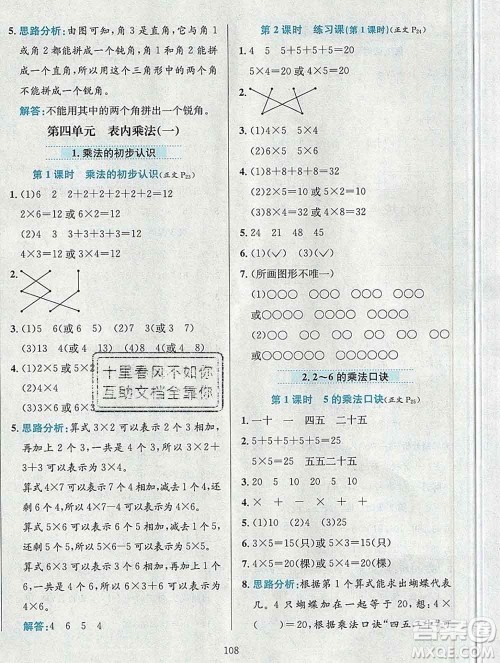 5. 思路分析:由图可知,角3是直角。它与角
1能不能拼成一个锐角,角1和角2能不
能拼成一个锐角,角2和角3能不能拼成
一个锐角。所以用这个三角形中的两个
角不能拼成一个锐角。
解答:不能用其中的两个角拼出一个锐角。
第四单元 表内乘法(一)
1.乘法的初步认识
第1课时 乘法的初步认识(正文P23)
1. (1)6 2 2+2+2+2+2+2=12
2×6=12或6×2=12
(2)4 3 3+3+3+3=12
3×4=12或4×3=12
2.
3. (1)5 6(或6 5) (2)7 8(或8 7)
(3)13 4(或4
5. 思路分析:算式3×2可以表示2个3相
加,再加上一个3,可以表示3个3相加,
所以3×2+3可以表示3×4。
算式4×6可以表示6个4相加,减去1个4,
可以表示5个4相加,所以4×6-4可以
表示4×5。
算式6×5可以表示5个6相加,再加上一
个6,可以表示6个6相加,所以6×5+6
可以表示6×6。
算式5×5可以表示5个5相加,减去1个5,
可以表示4个5相加,所以5×5-5可以
表示5×4。
解答:4 6 5 4
十里春风不如你
互助文档全靠你
第2课时 练习课(第1课时)(正文P24)
1. 4 5 5+5+5+5=20
5×4=20或4×5=20
2.
3. (1)4×5 5×4
(2)6×4 4×6
4. (1)3 8 (2)5 2
5. 24 21 48 45
6. (✓) ( ) (✓) (✓)
7. (所画图形不唯一)
或
2. 2~6的乘法口诀
第1课时 5的乘法口诀(正文P25)
1. 一十 一 四五 二十五
2. 5+5+5+5+5=25
5×5=25 五五二十五
3. (1)( ) (✓) (2)(✓) ( )
4. × + × - + ×
5. 20 5 15 10
6. 3×5=15(只)或5×3=15(只)
7. 4×5=20(棵)或5×4=20(棵)
8. 思路分析:根据第1个算式能求出蝴蝶代表
几。4只蝴蝶加在一起等于20,也就是
108
答案圈
MXQE.COM